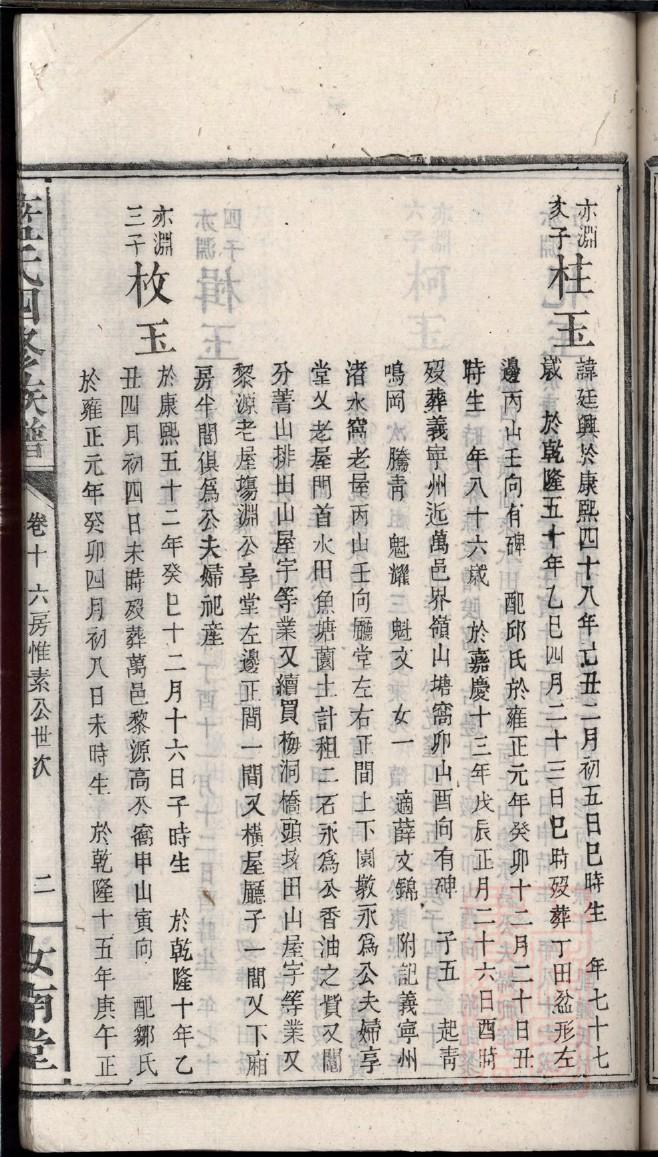 亦淵
次子
桂玉
諱廷興於康熙四十八年己丑二月初五日巳時生 年七十七
歲 於乾隆五十年乙巳四月二十三日巳時歿葬丁田盆形左
邊丙山壬向有碑 配邱氏於雍正元年癸卯十二月二十日丑
時生 年八十六歲 於嘉慶十三年戊辰正月二十六日酉時
歿葬義寧州近萬邑界嶺山塘窩卯山酉向有碑 子五 起青
鳴岡 騰青 魁耀 魁文 女一 適薛文錦 附記義寧州
渚水窩老屋丙山壬向廳堂左右正間上下園墩永爲公夫婦享
堂又老屋門首水田魚塘薗土計租二石永爲公香油之費又鬮
分菁山排田山屋宇等業又續買梅洞橋頭垓田山屋宇等業又
黎源老屋塲淵公享堂左邊正間一間又橫屋廳子一間又下廂
房半間俱爲公夫婦祀產
亦淵
三子
枚玉
於康熙五十二年癸巳十二月十六日子時生 於乾隆十年乙
丑四月初四日未時歿葬萬邑黎源高丞窩申山寅向 配鄒氏
於雍正元年癸卯四月初八日未時生 於乾隆十五年庚午正
氏四修族譜
卷十 六房惟素公世次
二
汝南堂